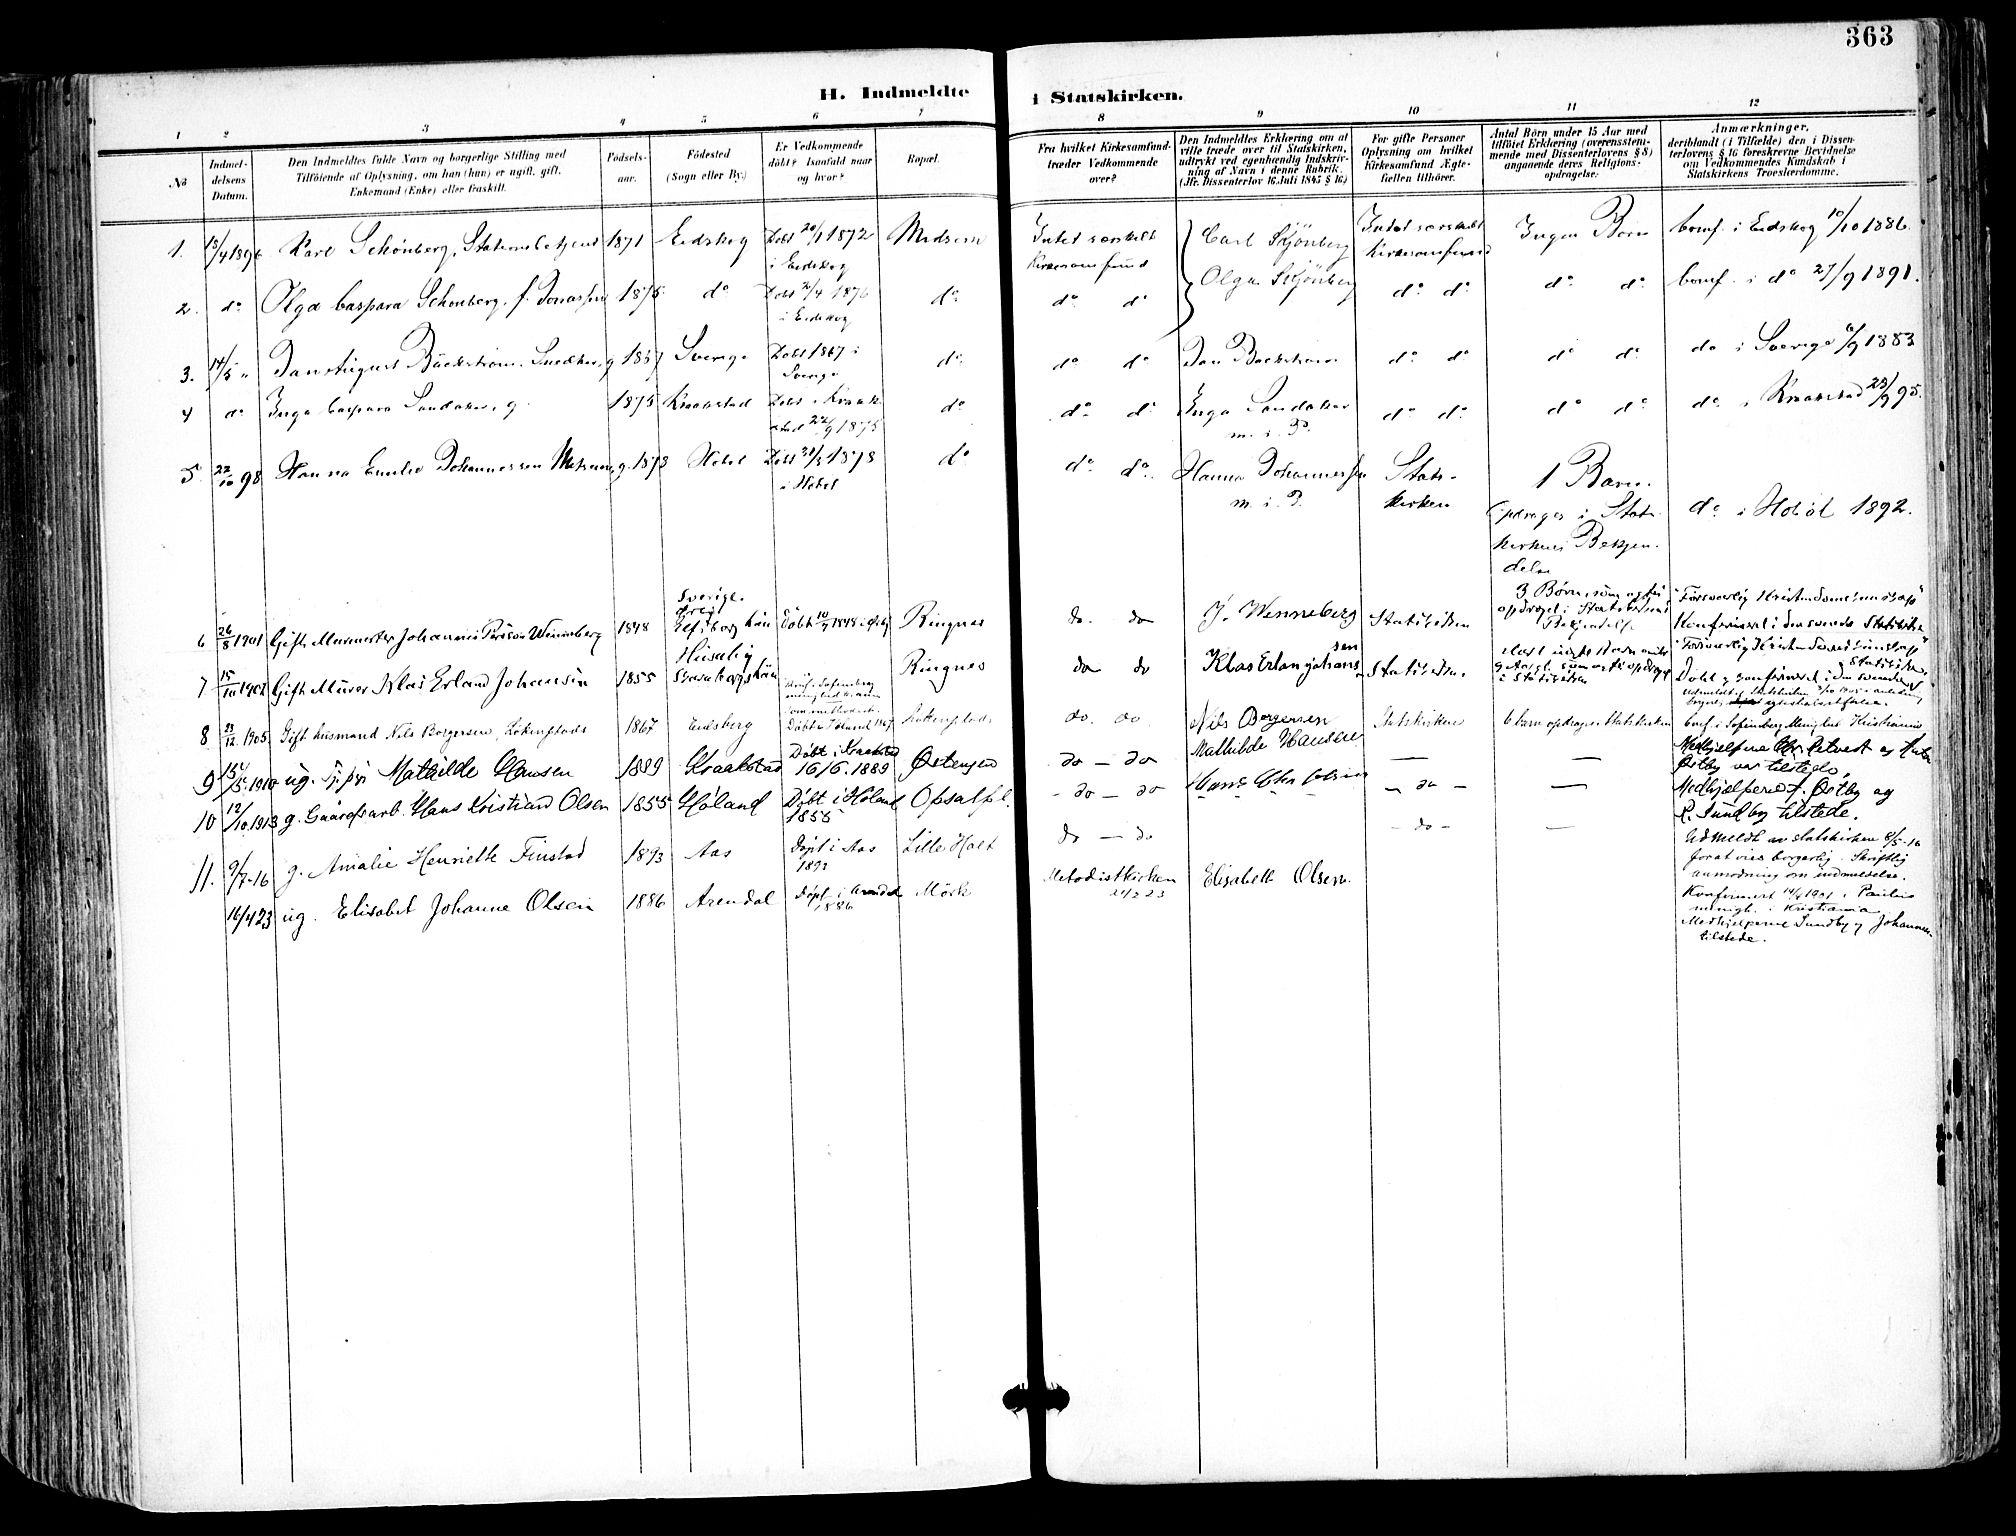 363
H. Indmeldte i Statskirken.
1 2 3 4 5 6 7 8 9 10 11 12
No
Indmel-
delsens
Datum.
Den Indmeldtes fulde Navn og borgerlige Stilling med
Tilföiende af Oplysning, om han (hun) er ugift, gift,
Enkemand (Enke) eller fraskilt.
Födsels-
aar.
Födested
(Sogn eller By.)
Er Vedkommende
döbt? Isaafald naar
og hvor?
Bopæl.
Fra hvilket Kirkesamfund
træder Vedkommende
over?
Den Indmeldtes Erklæring om at
ville træde over til Statskirken,
udtrykt ved egenhændig Indskriv-
ning af Navn i denne Rubrik
(Jfr. Dissenterlov 16 Juli 1845 § 16)
For gifte Personer
Oplysning om hvilket
Kirkesamfund Ægte-
fællen tilhörer.
Antal Börn under 15 Aar med
tilföiet Erklæring (overensstem-
mende med Dissenterlovens § 8)
angaaende deres Religions-
opdragelse:
Anmærkninger,
deriblandt (i Tilfælde) den i Dissen-
terlovens § 16 foreskrevne Bevidnelse
om Vedkommendes Kundskab i
Statskirkens Troeslærdomme.
1. 13/4 1896 Karl Schönberg, Stationsbetjent 1871 Eidskog Döbt 20/1 1872
i Eidskog
Intet særskilt
Kirkesamfund
Carl Skjönberg
Intet særskilt
Kirkesamfund
Ingen Börn
conf. i Eidskog 10/10 1886.
2. do Olga Caspara Schönberg, f. 1875 do Döbt 2/4 1876
i Eidskog
do
do do
Olga Skjönberg
do do
do do
conf. i do 27/9 1891.
3. 14/5 " Jan August Bäckström, Snedker, g 1857 Sverige Döbt 1857 i
Sverige
do
do do
Jan Backström
do do
do do
do i Sverige 1883
4 do Inga Caspara Sandaker, g. 1875 Kraakstad Döbt i Kraak
stad 22/9 1875
do
do do
Inga Sandaker
m. i. P.
do do
do do
do i Kraakstad
5 22/10 98 Hanna Emilie Johannessen g. 1878 Hobøl 1878
i Hobøl
do
do do
Hanna Johannessen
m. i. P.
Stats-
kirken
1 Barn.
Opdrages i Stats-
kirkens Bekjen-
delse
do i Hobøl 1892.
6 26/8 1901 Gift Murmester Johannes Winneberg 1848
Sverige
Elfsborg län
Döbt 10/9 1848
Ringnes
do. do
J. Wenneberg
Statskirken
3 Børn, som
opdrages i Statskirkens
Bekjendelse
Konfirmeret i den svenske Statskirke
7 15/10 1902 Gift Murer Klas Erland Johansen 1855
Ringnes
do do
Klas Erlan johans
sen
Statskirken
8 23/12 1905 Gift husmand Nils Borgersen, Lökenplads 1867 Eidsberg
Lökenplads
do. do.
Nils Borgersen
Statskirken
6 barn opdrages i Statskirken
9 1910 ug. tj. pige Mathilde Hansen 1889 Kraakstad
Döbt i Kraakstad
16/6. 1889
Østensjø
do - do
Mathilde Hansen
10 12/10 1913 g. Gaardsarb. Hans Kristian Olsen 1855 Høland
Döbt i Høland
1855
Opsalpl.
- do - do
- do -
Medhjælperne Østby og
Sundby tilstede.
11. 9/7-16 g. Amalie Henriette Finstad 1893 Aas
Døpt i Aas
1893
Lille Holt
do - do
- do -
Udmeldt av statskirken 8/5-16
for at vies borgerlig. Skriftlig
anmodning om indmeldelse.
16/4 23 ug. Elisabet Johanne Olsen 1886 Arendal
Døpt i Arendal
1886
Mörk
Metodistkirken
21/2 23
Elisabeth Olsen.
Konfirmert 14/4 1901 i Paulus
menigh. i Kristiania
Medhjelperne Sundby og Johannesen
tilstede.